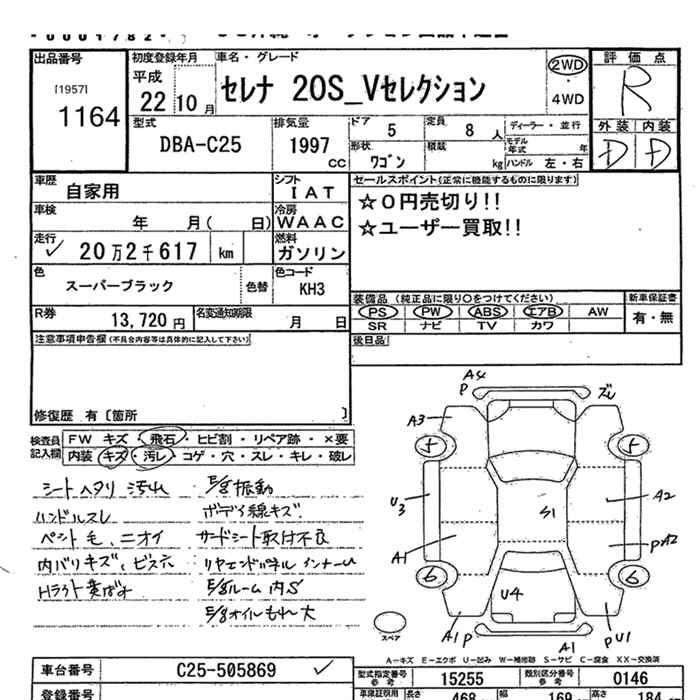 出品番号
[1957]
1164
初度登録年月
平成
22 10月
車名・グレード
セレナ 20S_Vセレクション
2WD
4WD
評価点
R
外装 内装
D D
型式
DBA-C25
排気量
1997
cc
ドア
5
定員
8人
ディーラー・並行
形状
ワゴン
積載
kg
モデル年式
年
ハンドル 左・右
車歴
自家用
シフト
IAT
セールスポイント(正常に機能するものに限ります)
☆0円売切り!!
☆ユーザー買取!!
車検
年 月( 日)
冷房
WAAC
走行
✓ 20万2千617 km
燃料
ガソリン
色
スーパーブラック
色替
色コード
KH3
装備品(純正品に限り○をつけてください)
新車保証書
PS PW ABS エアB AW
有・無
SR ナビ TV カワ
R券
13,720円
名変通知期限
月 日
後日品
注意事項申告欄(不具合内容等は具体的に記入して下さい)
修復歴 有〔箇所 〕
検査員記入欄
FW キズ・飛石・ヒビ割・リペア跡・×要
内装・キズ・汚レ・コゲ・穴・スレ・キレ・破レ
シートヘタリ 汚れ
ハンドルスレ
ペット毛、ニオイ
内バリキズ、ビス穴
Hライト黄ばみ
E/g振動
ボディ線キズ
サードシート取付不良
リヤエンドパネル インナーU
E/gルーム内S
E/gオイルもれ大
A4
P
ズレ
A3
5
5
U3
S1
A2
A1
PA2
6
6
U4
A1P
A1
PU1
スペア
A-キズ E-エクボ U-凹み W-補修跡 S-サビ C-腐食 XX-交換済
車台番号
C25-505869 ✓
型式指定番号
参考
15255
類別区分番号
参考
0146
登録番号
長さ
468
幅
169
高さ
184